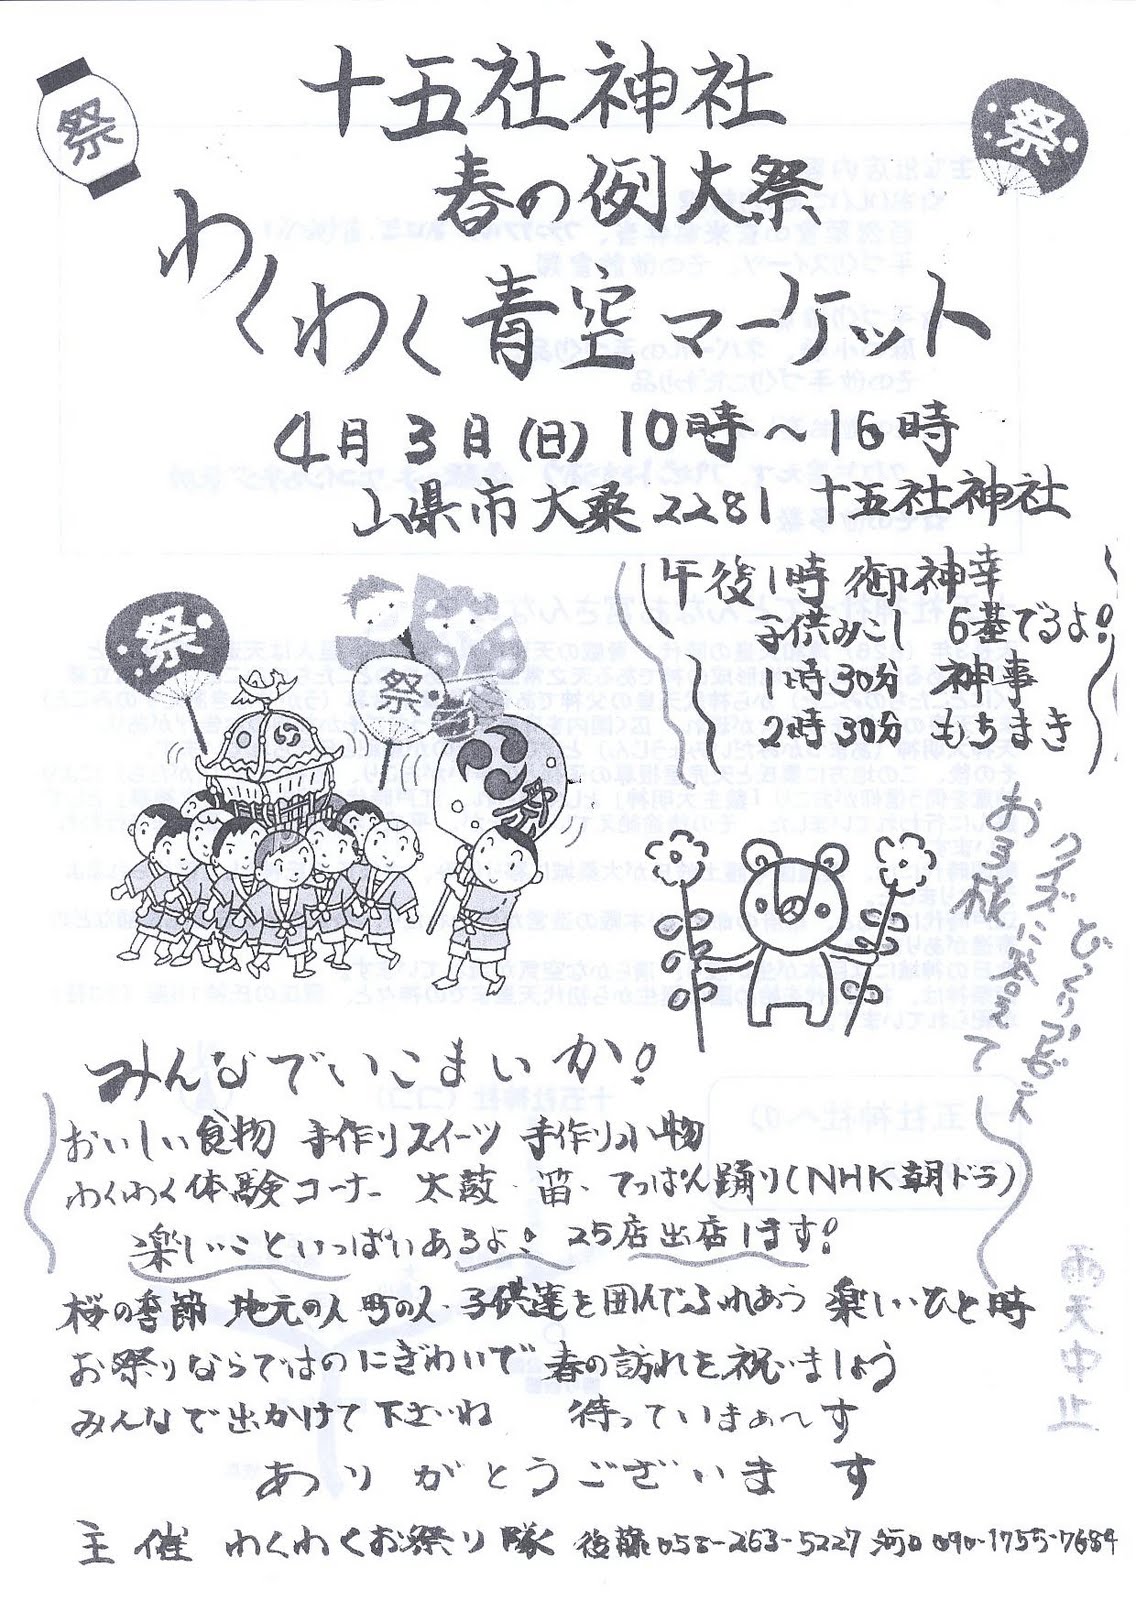 十五社神社
祭
祭
春の例大祭
わくわく青空マーケット
4月3日(日) 10時〜16時
山県市大桑2281 十五社神社
午後1時 御神幸
子供みこし 6基でるよ!
1時30分 神事
2時30分 もちまき
祭
祭
お子様
クイズに答えて
びっくりプレゼント
みんなでいこまいか!
おいしい食物 手作りスイーツ 手作り小物
わくわく体験コーナー 太鼓・笛・てっぱん踊り(NHK朝ドラ)
楽しいこといっぱいあるよ! 25店出店します!
桜の季節 地元の人 町の人 子供達を囲んでふれあう 楽しいひと時
お祭りならではのにぎわいで 春の訪れを祝いましょう
みんなで出かけて下さいね 待っていまぁ〜す
ありがとうございます
雨天中止
主催 わくわくお祭り隊 後藤058-263-5227 河口090-1755-7684